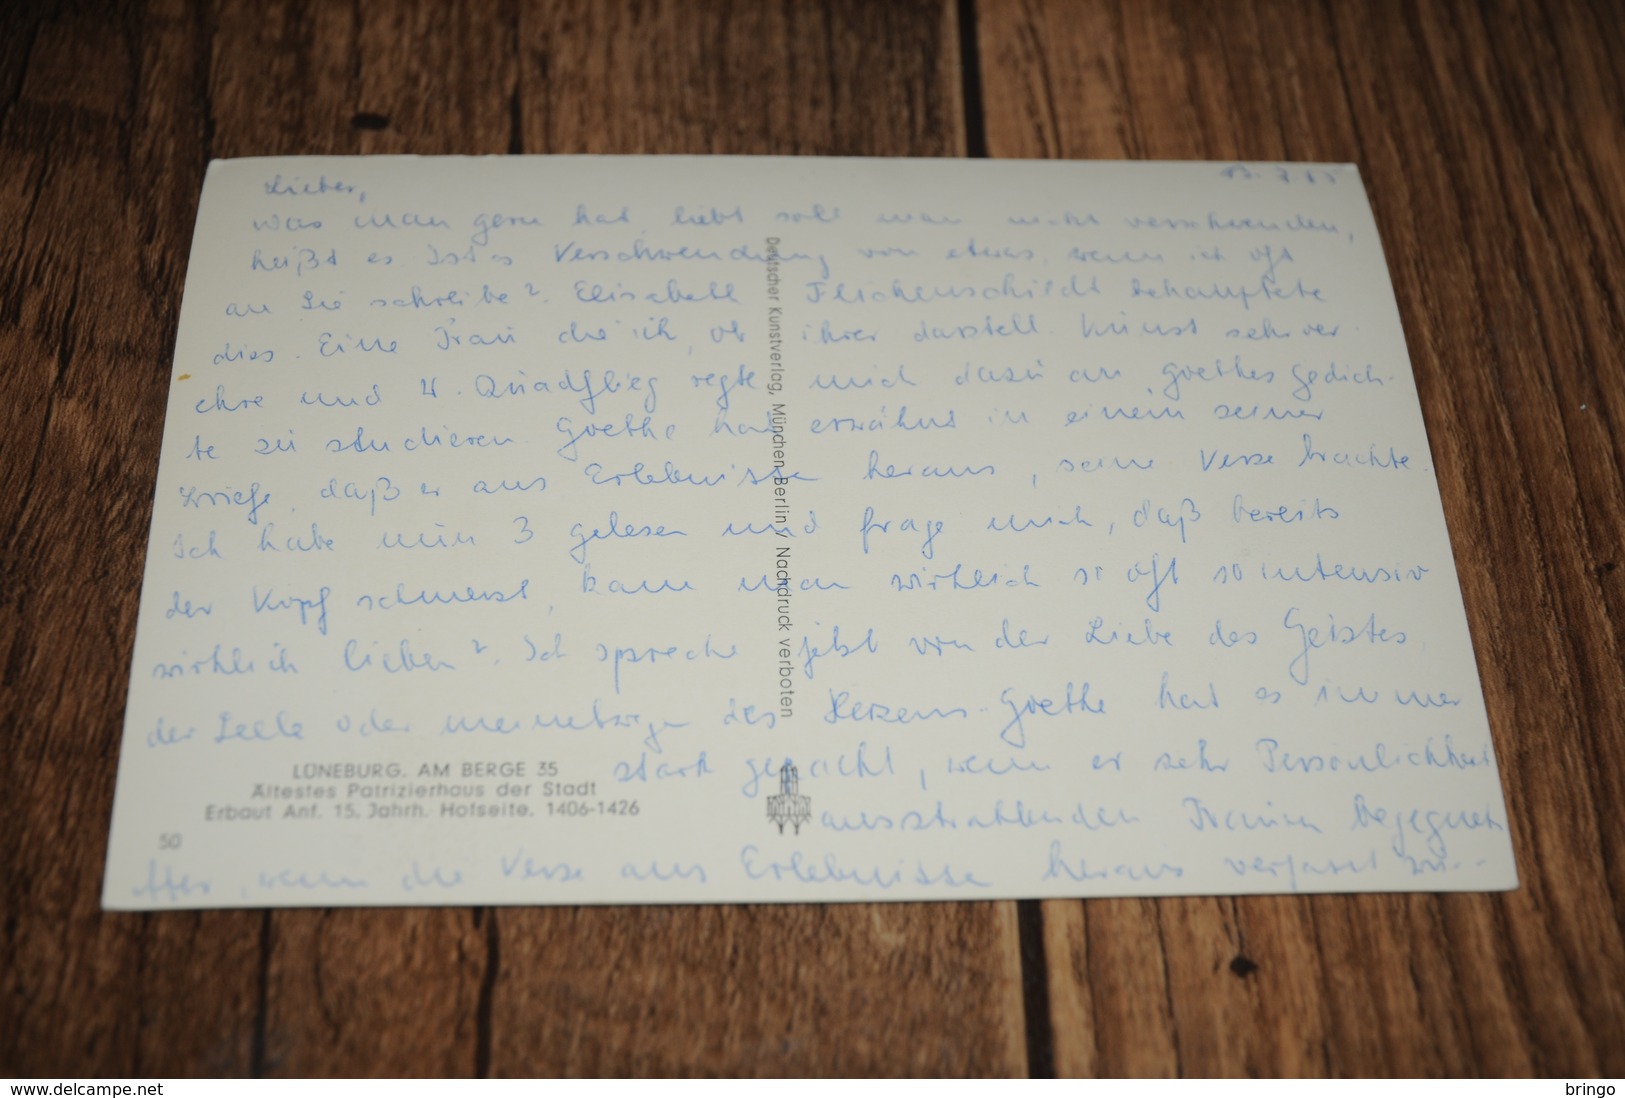 Lieber,
was man gern hat liebt soll man nicht verschwenden,
heißt es. Ist es Verschwendung von etwas, wenn ich oft
an Sie schreibe? Elisabeth Flickenschildt behauptete
dies. Eine Frau die ich, ob ihrer darstell. Kunst sehr ver-
ehre und W. Quadflieg regte mich dazu an, Goethes Gedich-
te zu studieren. Goethe hat erwähnt in einem seiner
Briefe, daß er aus Erlebnisse heraus, seine Verse brachte.
Ich habe nun 3 gelesen und frage mich, daß bereits
der Kopf schmerzt, kann man wirklich so oft so intensiv
wirklich lieben? Ich spreche jetzt von der Liebe des Geistes
der Seele oder meinetwegen des Herzens - Goethe hat es immer
stark gemacht, wenn er sehr Persönlichkeit
ausstrahlenden Frauen begegnet
wenn die Verse aus Erlebnisse heraus verfasst
Deutscher Kunstverlag, München Berlin / Nachdruck verboten
LÜNEBURG. AM BERGE 35
Ältestes Patrizierhaus der Stadt
Erbaut Anf. 15. Jahrh. Hofseite. 1406-1426
50
www.delcampe.net
bringo